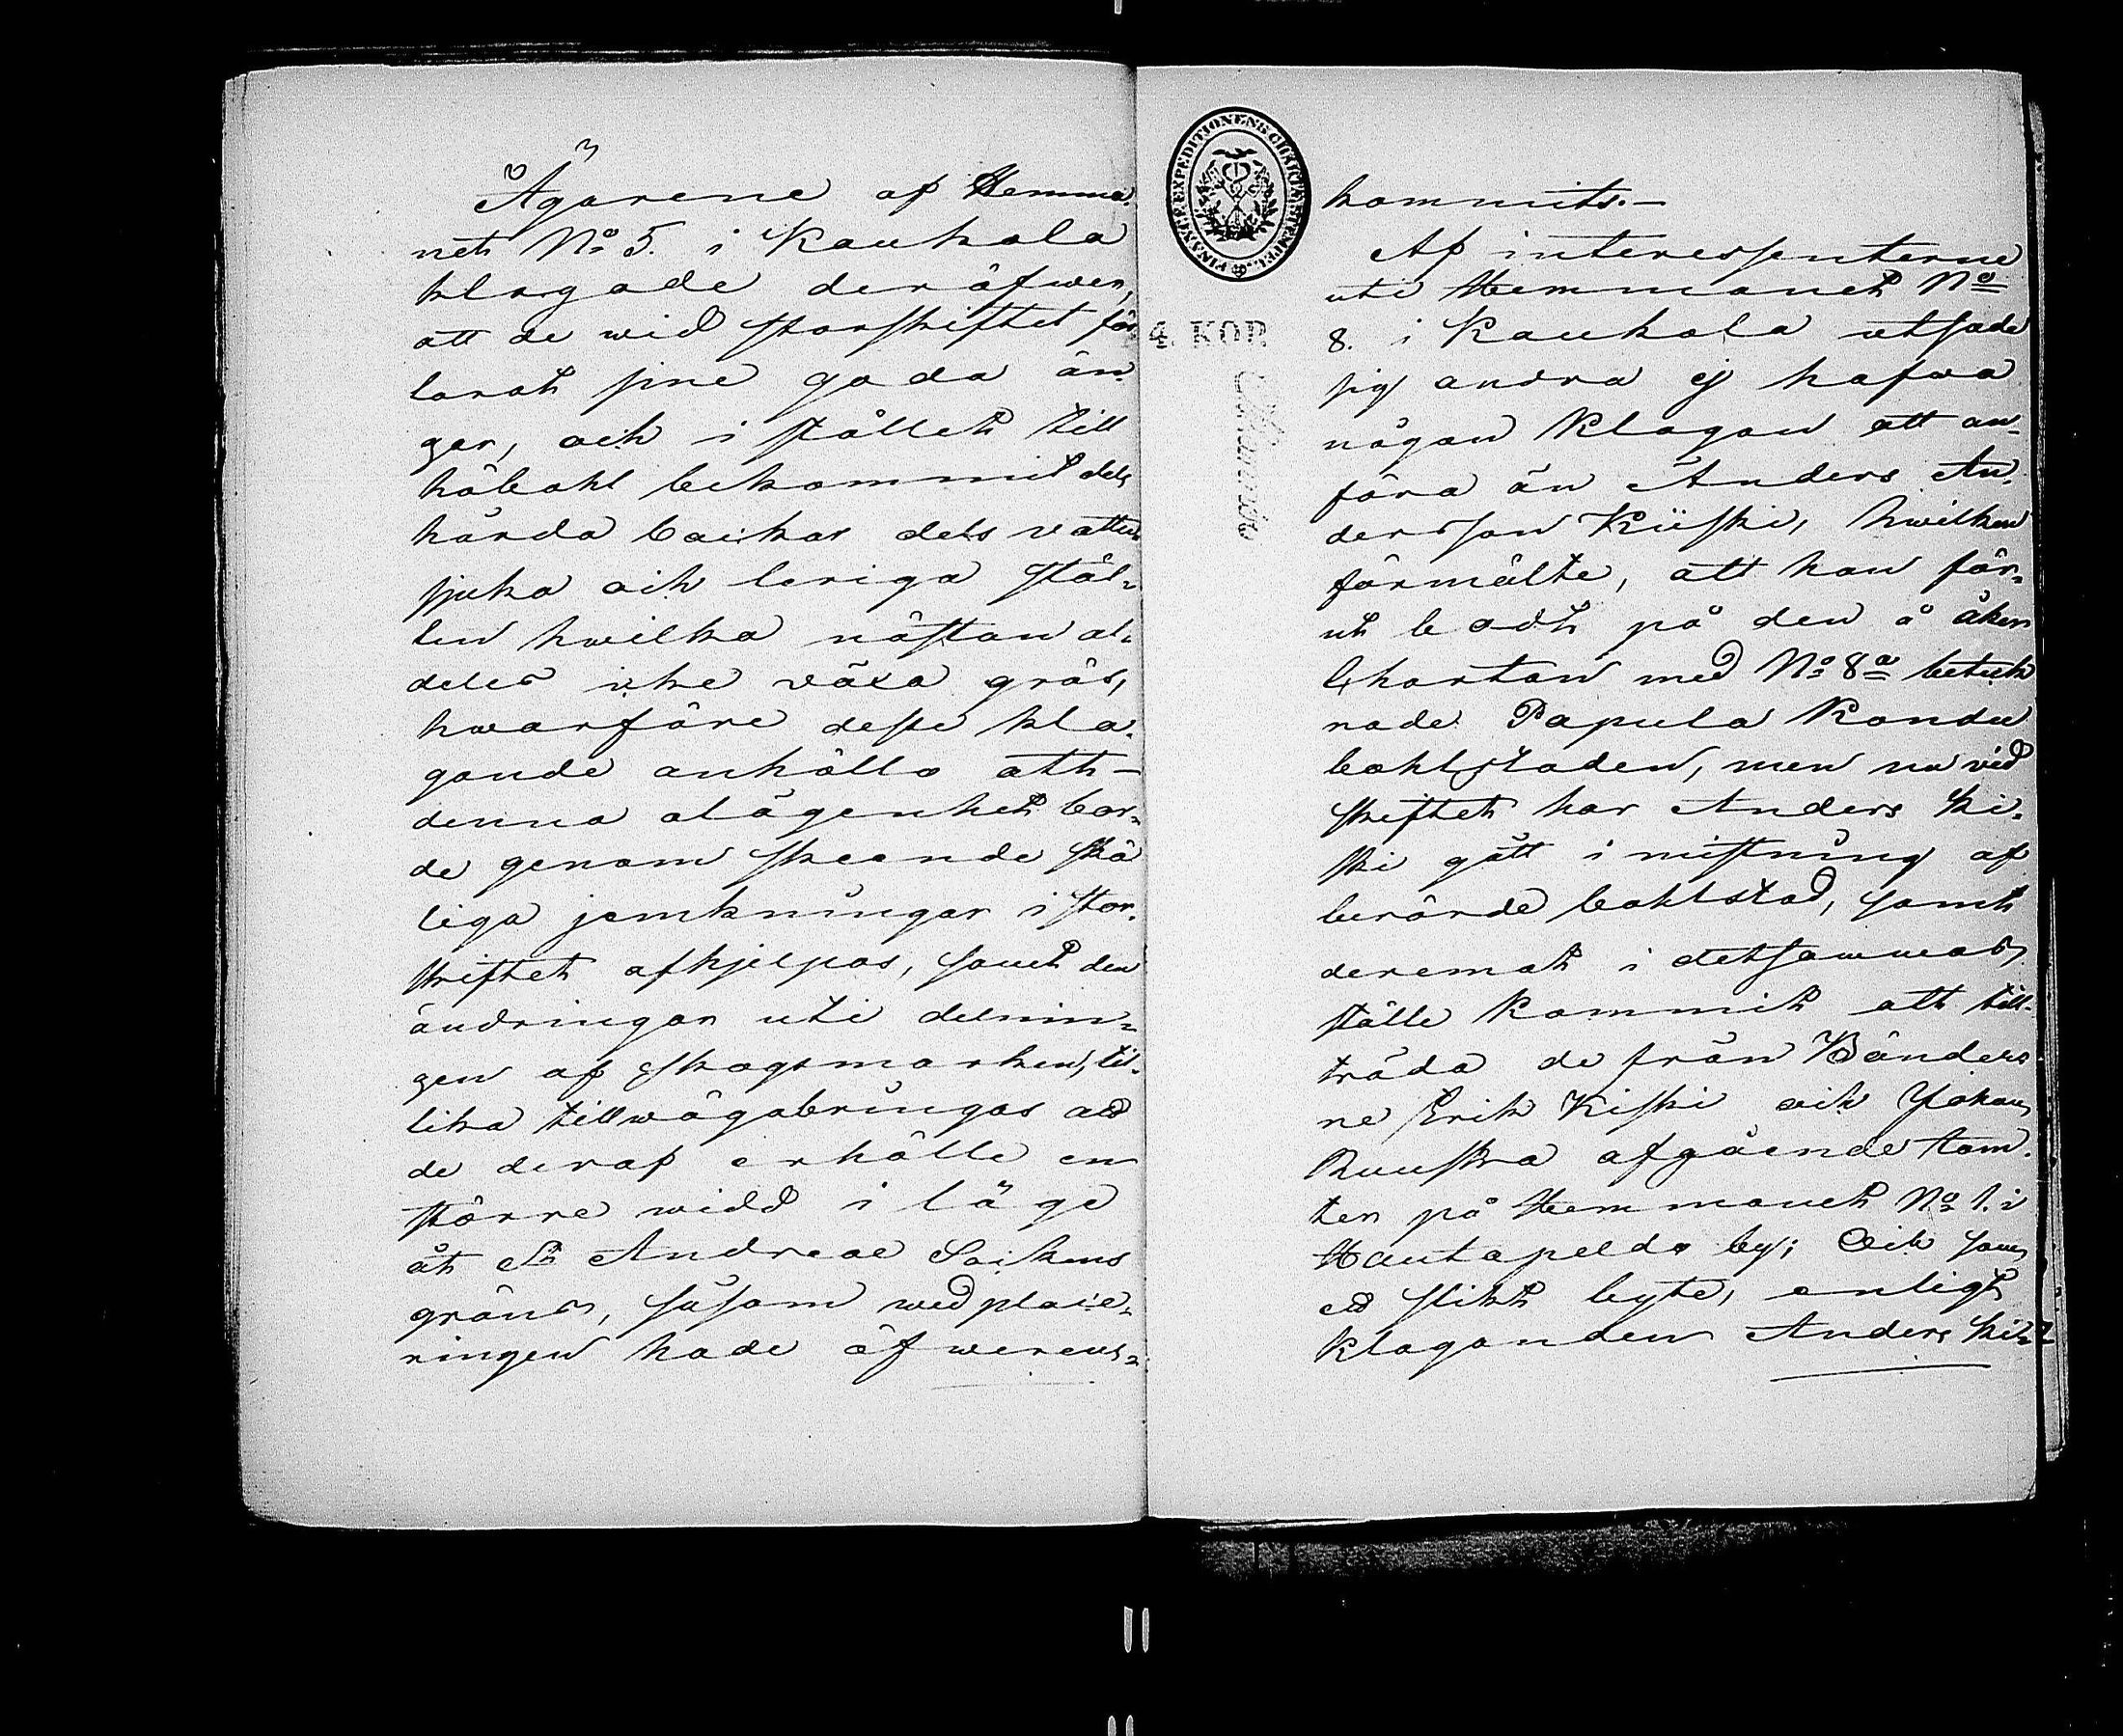 Ägarene af Hemma-
net No 5. i Kaukola
klagade deröfwer,
att de wid storskiftet för
lorat sine goda än
gar, och i stället till
höbohl bekommit dels
hårda backar dels vattu
sjuka och leriga stäl-
len hwilka nästan al-
deles icke växa gräs,
hwarföre desse kla-
gande anhöllo att-
denna olägenhet bor-
de genom skeende skä
liga jemkningar i stor-
skiftet afhjelpas, samt den
ändringar uti delnin-
gen af skogsmarken, til-
lika tillwägabringas att
de deraf erhålle en
större widd i läge
åt St Andreae Sockens
gräns, såsom wed plaie-
ringen hade öfwerens-
FINANCE EXPEDITIONENS CHARTÆ STEMPEL
4. KOP.
kommits.-
Af interessenterne
uti Hemmanet No
8. i Kaukola utsade
sig andra ej hafwa
någon klagan att an-
föra än Anders An-
dersson Kiiski, hwilken
förmälte, att han för-
ut bodt på den å åker
Chartan med No 8a beteck
nade Papula Kondu
bohlstaden, men nu vid
skiftet har Anders Ki-
ski gått i mistning af
berörde bohlstad, samt
deremot i detsammas
ställe kommit att till-
träda de från Bönder
ne Erik Kiski och Johan
Ruuska afgående tom-
ter på Hemmanet No 1. i
Hautapeldo by; Och som
ett slikt byte, enligt
klaganden Anders Ki-